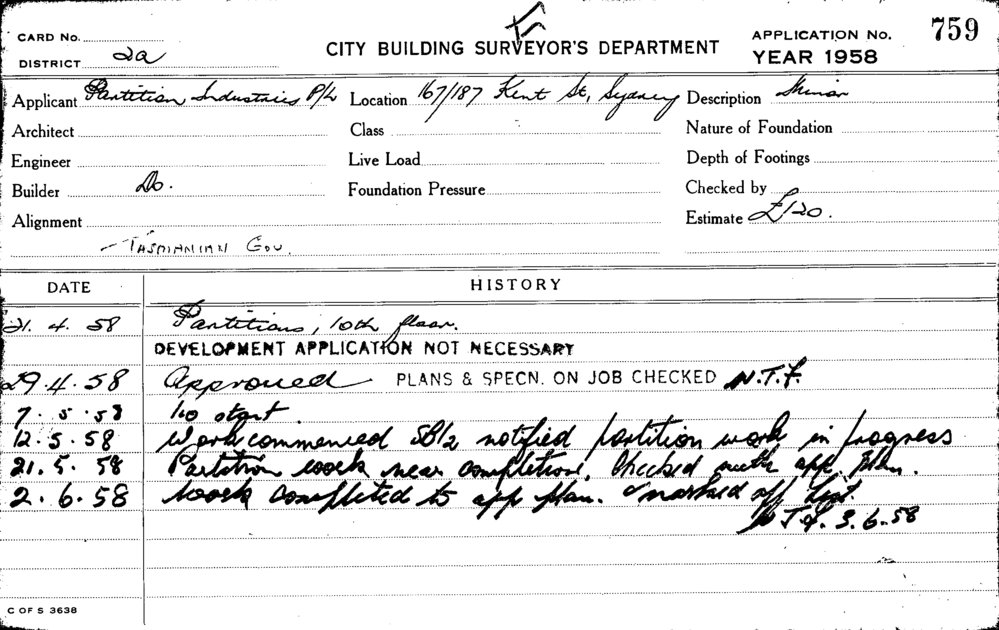 CARD No.
DISTRICT 2a
CITY BUILDING SURVEYOR'S DEPARTMENT
APPLICATION No. 759
YEAR 1958
Applicant Partition Industries P/L Location 167/187 Kent St, Sydney Description Minor
Architect Class Nature of Foundation
Engineer Live Load Depth of Footings
Builder Do. Foundation Pressure Checked by
Alignment Estimate £120.
- TASMANIAN GOV.
DATE HISTORY
21. 4. 58 Partitions, 10th floor.
DEVELOPMENT APPLICATION NOT NECESSARY
29.4.58 Approved PLANS & SPECN. ON JOB CHECKED N.T.F.
7.5.58 No start
12.5.58 Work commenced SB/2 notified partition work in progress
21.5.58 Partition work near completion, checked with app. plan.
2.6.58 Work completed to app plan. & marked off List.
N.T.F. 3.6.58
C OF S 3638